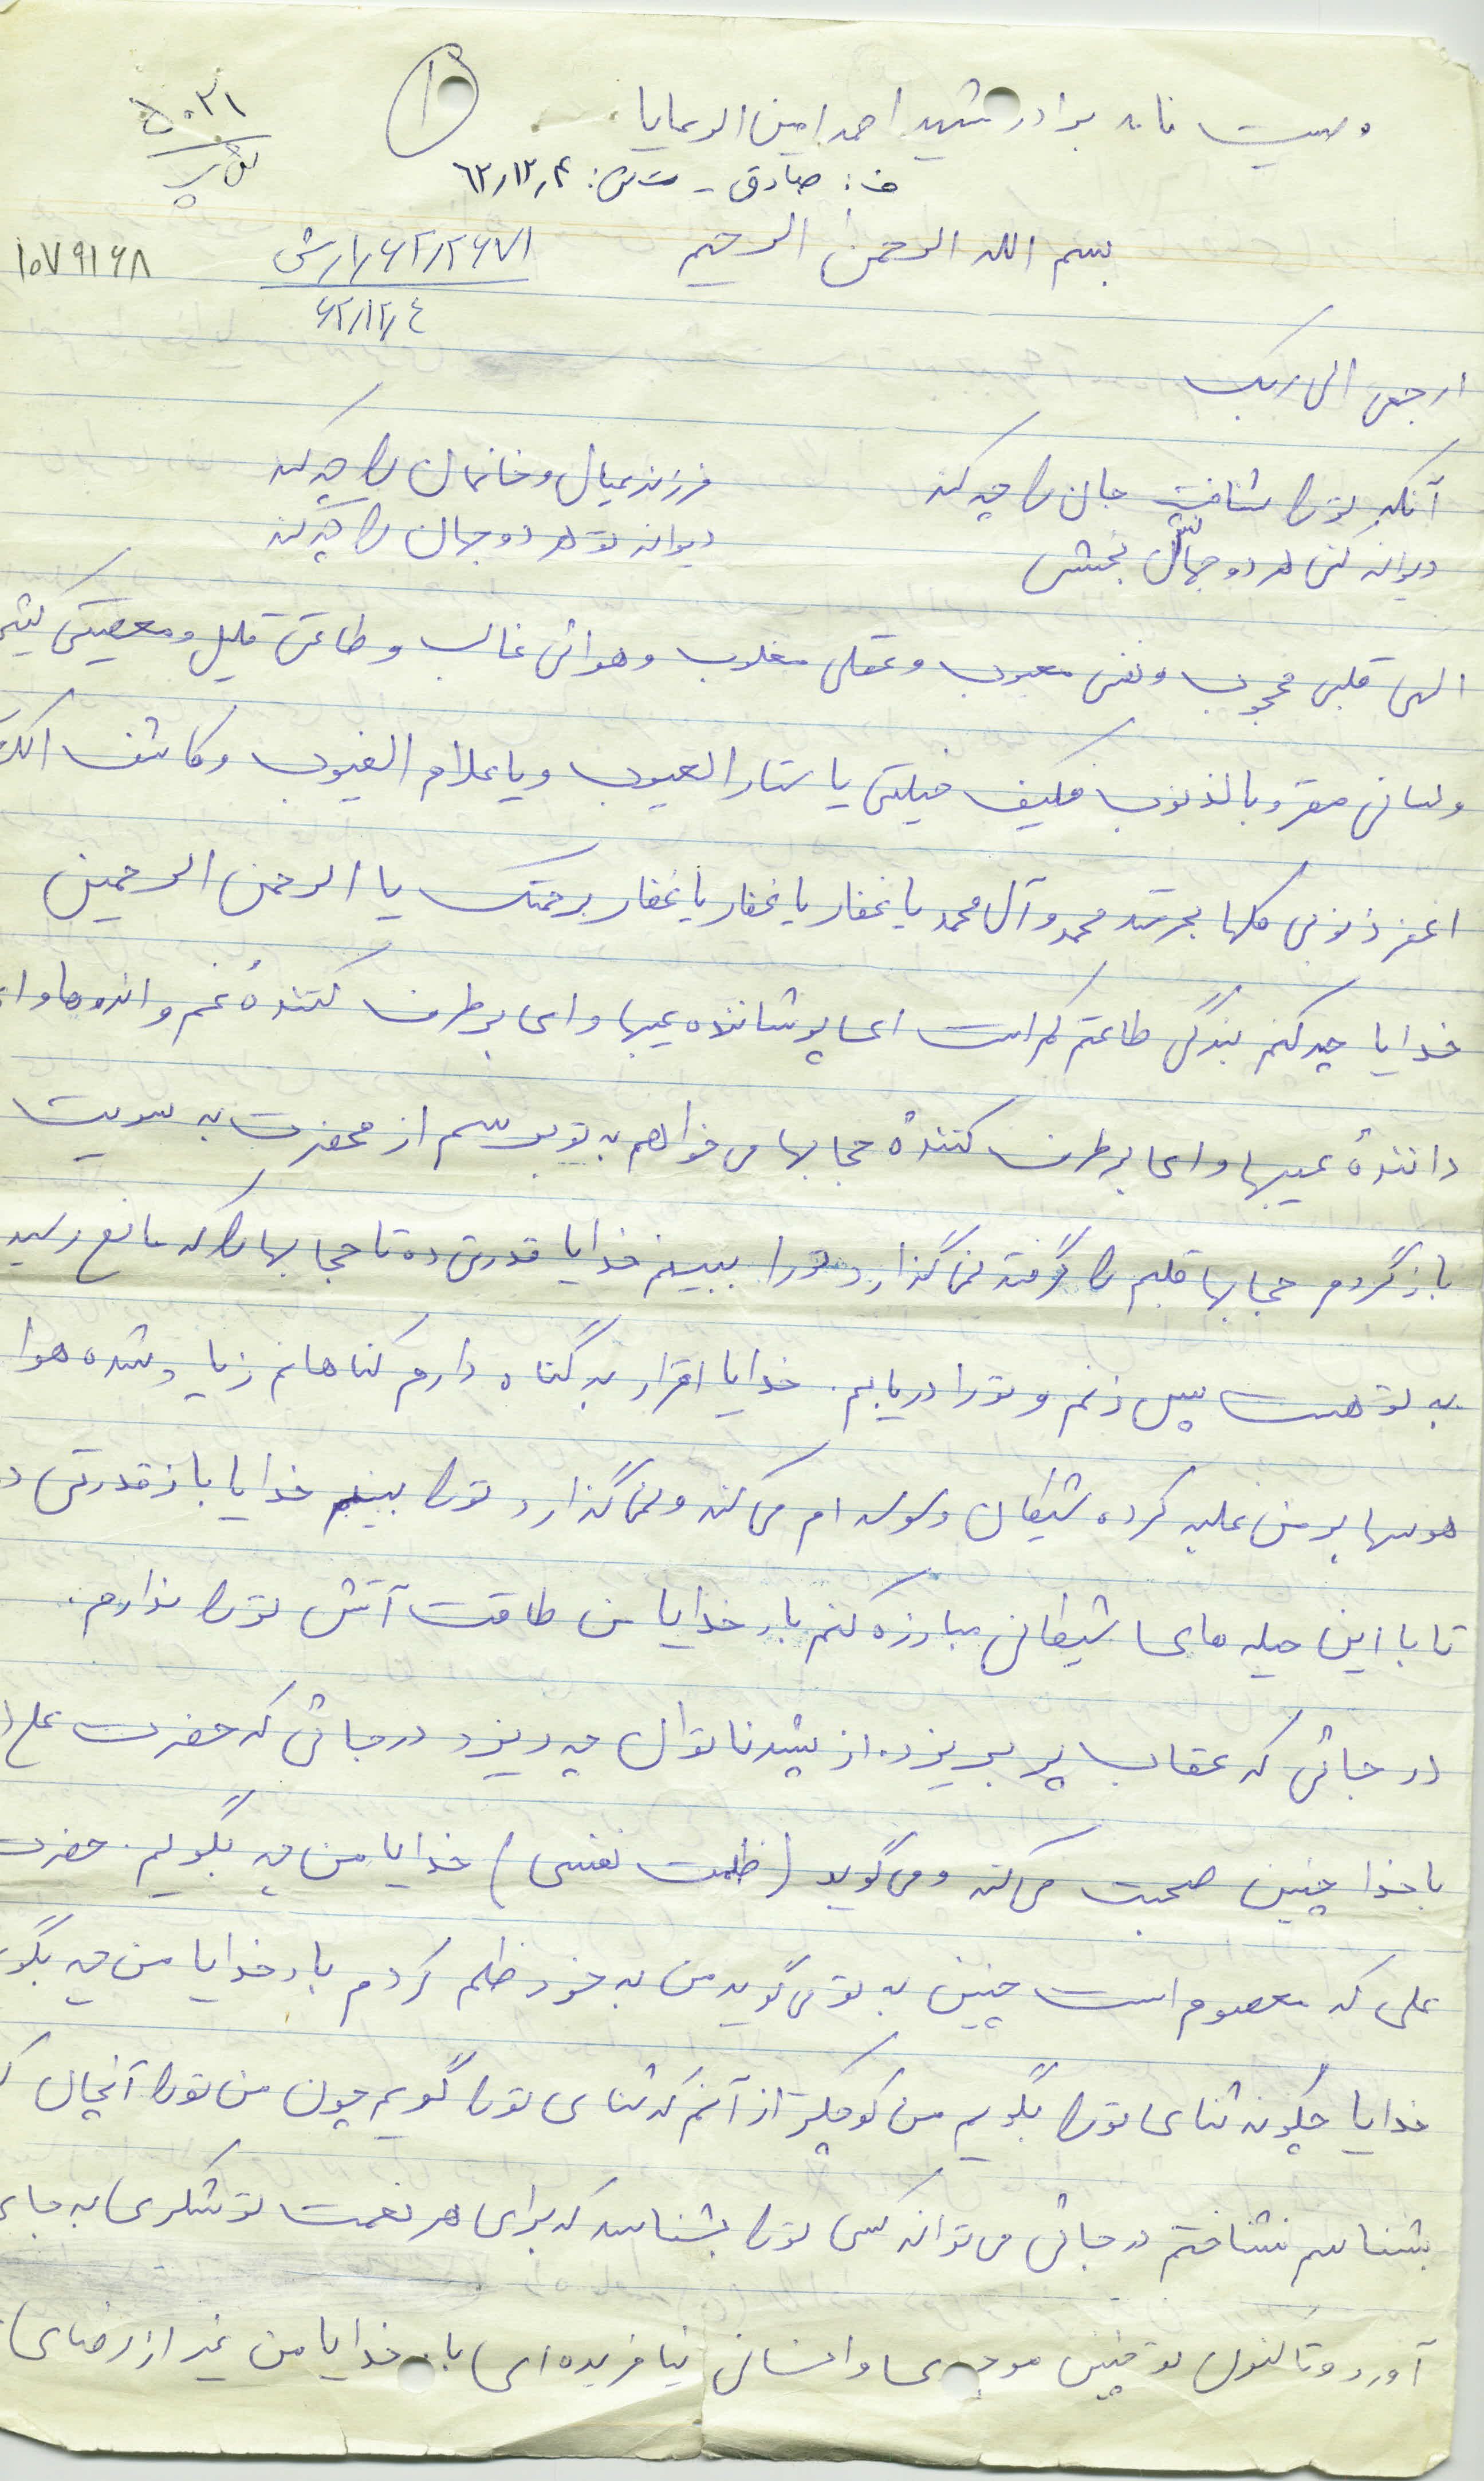 وصیت نامه برادر شهید احمد امین الرعایا
۵۰۲۱
ف: صادق - ت ش: ۶۲/۱۲/۴
بسم الله الرحمن الرحیم
۶۲/۲۶۷۱
۶۲/۱۲/٤
۱۰۷۹۱۶۸
ارجعی الی ربک
آنکه تو را شناخت جان را چه کند فرزند عیال و خانمان را چه کند
دیوانه کنی هر دو جهانش بخشی دیوانه تو هر دو جهان را چه کند
الهی قلبی محجوب و نفسی معیوب و عقلی مغلوب و هوائی غالب و طاعتی قلیل و معصیتی کثیر
ولسانی مقر و بالذنوب فکیف حیلتی یا ستار العیوب و یا علام الغیوب و کاشف
اغفر ذنوبی کلها بحرمته محمد و آل محمد یا غفار یا غفار یا غفار برحمتک یا الرحمن الرحمین
خدایا چه کنم بندگی طاعتم کم است ای پوشاننده عیبها و ای برطرف کننده غم و اندوهها و ای
دانندهٔ عیبها و ای برطرف کنندهٔ حجابها می خواهم به تو برسم از محضرت به سویت
بازگردم حجابها قلبم را گرفته نمی گذارد تو را ببینم خدایا قدرتی ده تا حجابها را که مانع رسید
به تو هست پس زنم و تو را دریابم. خدایا اقرار به گناه دارم گناهانم زیاد شده هوا
هوسها بر من غلبه کرده شیطان وسوسه ام می کند و نمی گذارد تو را ببینم خدایا باز قدرتی د
تا با این حیله های شیطانی مبارزه کنم بار خدایا من طاقت آتش تو را ندارم.
در جائی که عقاب پر بریزد. از پشه ناتوان چه ریزد در جائی که حضرت علی
با خدا چنین صحبت می کند و می گوید (ظلمت نفسی) خدایا من چه بگویم. حضرت
علی که معصوم است چنین به تو می گوید من به خود ظلم کردم بار خدایا من چه بگو
خدایا چگونه ثنای تو را بگویم من کوچکتر از آنم که ثنای تو را گویم چون من تو را آنچنان ک
بشناسم نشناختم در جائی می تواند کسی تو را بشناسد که برای هر نعمت تو شکری به جای
آورد و تا کنون تو چنین موجودی و انسانی نیافریده ای بار خدایا من غیر از رضای